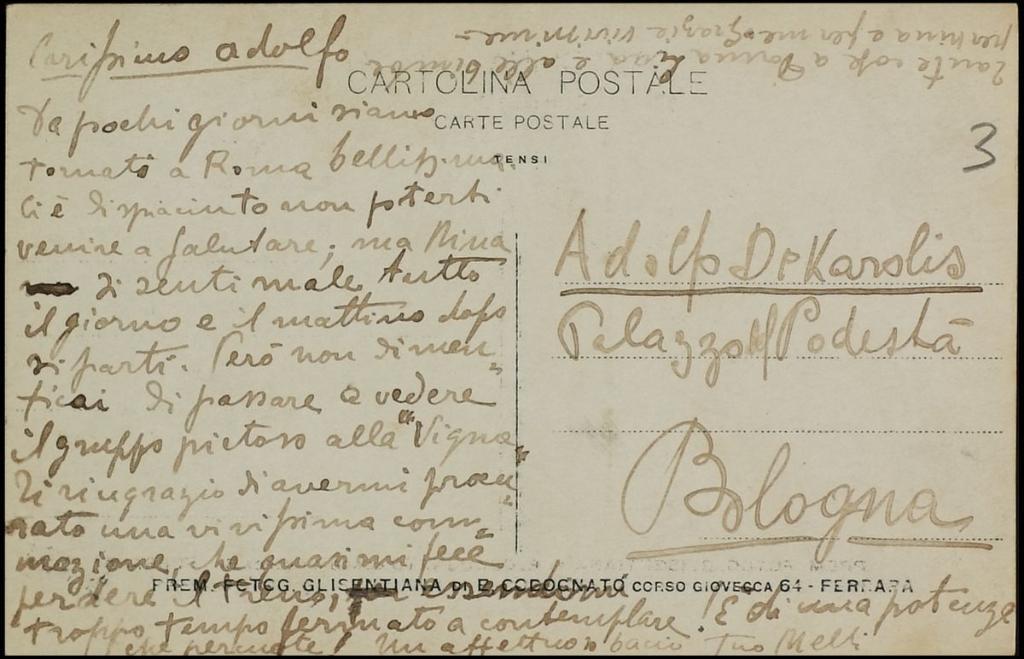 Carissimo Adolfo
CARTOLINA POSTALE
CARTE POSTALE
TENSI
Da pochi giorni siamo
tornati a Roma bellissima.
Ci è dispiaciuto non poterti
venire a salutare; ma Nina
si sentì male tutto
il giorno e il mattino dopo
si partì. Però non dimen-
ticai di passare a vedere
il gruppo pietoso alla "Vigna"
Ti ringrazio di avermi procu-
rato una vivissima com-
mozione, che quasi mi fece
perdere il treno,
troppo tempo fermato a contemplare! È di una potenza
che percuote! Un affettuoso bacio Tuo Melli
FREM. FOTOG. GLISENTIANA DI E. CODOGNATO CORSO GIOVECCA 64 - FERRARA
Tante cose a Donna Lina e alle bimbe
per Nina e per me. Grazie vivissime
3
Adolfo De Karolis
Palazzo del Podestà
Bologna